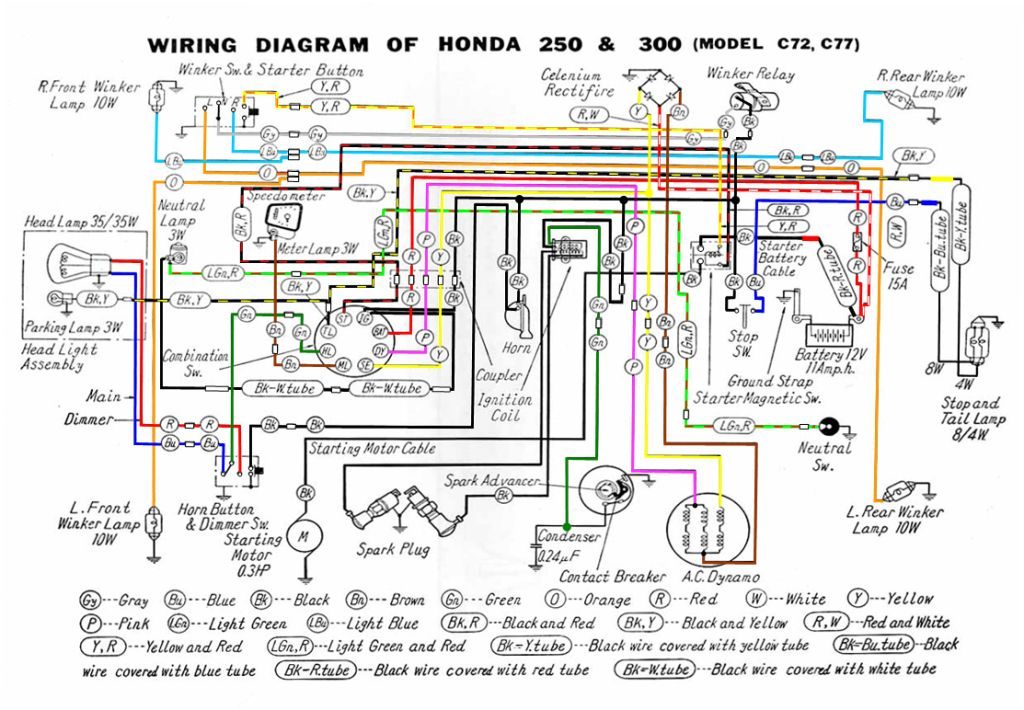 WIRING DIAGRAM OF HONDA 250 & 300 (MODEL C72, C77)
Winker Sw. & Starter Button
Celenium
Rectifire
Winker Relay
R.Front Winker
Lamp 10W
R.Rear Winker
Lamp 10W
Y,R
Y,R
R,W
Y
Bn
Gy
Gy
Gy
Gy
L N R
Bk
Bk
LBu
LBu
LBn
LBu
LBu
O
O
O
O
Bk,Y
Speedometer
Neutral
Lamp
3W
Meter Lamp 3W
Bk,R
Bk,Y
LGn,R
R
P
Y
Bk
P
Bk
Bk
Bu
Bu
Bk,R
Bk,Y
R
R,W
Bk-Bu.tube
Bk-Y.tube
Head Lamp 35/35W
LGn,R
Bk,Y
Bk,Y
Bk,Y
Parking Lamp 3W
Head Light
Assembly
R
P
Y
Bk
Bk
Starter
Battery
Cable
Bk-R.tube
R
Fuse
15A
Gn
Gn
Bn
Bn
TL
ST
IG
BAT
HL
DY
ML
SE
R
P
Y
Combination
Sw.
Horn
Gn
Gn
Bk
Y
Y
Bn
P
LGn,R
Stop
SW.
Battery 12V
11Amp.h.
Ground Strap
Starter Magnetic Sw.
8W
4W
Bk-W.tube
Bk-W.tube
Coupler
Ignition
Coil
Stop and
Tail Lamp
8/4W.
Main
Dimmer
R
R
Bu
Bu
Bk
Bk
LGn,R
Starting Motor Cable
Neutral
Sw.
Spark Advancer
Bk
Bk
L.Front
Winker Lamp
10W
Horn Button
& Dimmer Sw.
Starting
Motor
0.3HP
M
Spark Plug
Condenser
0.24µF
Contact Breaker
A.C.Dynamo
L.Rear Winker
Lamp 10W
Gy---Gray Bu---Blue Bk---Black Bn---Brown Gn---Green O---Orange R---Red W---White Y---Yellow
P---Pink LGn---Light Green LBu---Light Blue Bk,R---Black and Red Bk,Y---Black and Yellow R,W---Red and White
Y,R---Yellow and Red LGn,R---Light Green and Red Bk-Y.tube---Black wire covered with yellow tube Bk-Bu.tube--Black
wire covered with blue tube Bk-R.tube---Black wire covered with red tube Bk-W.tube---Black wire covered with white tube